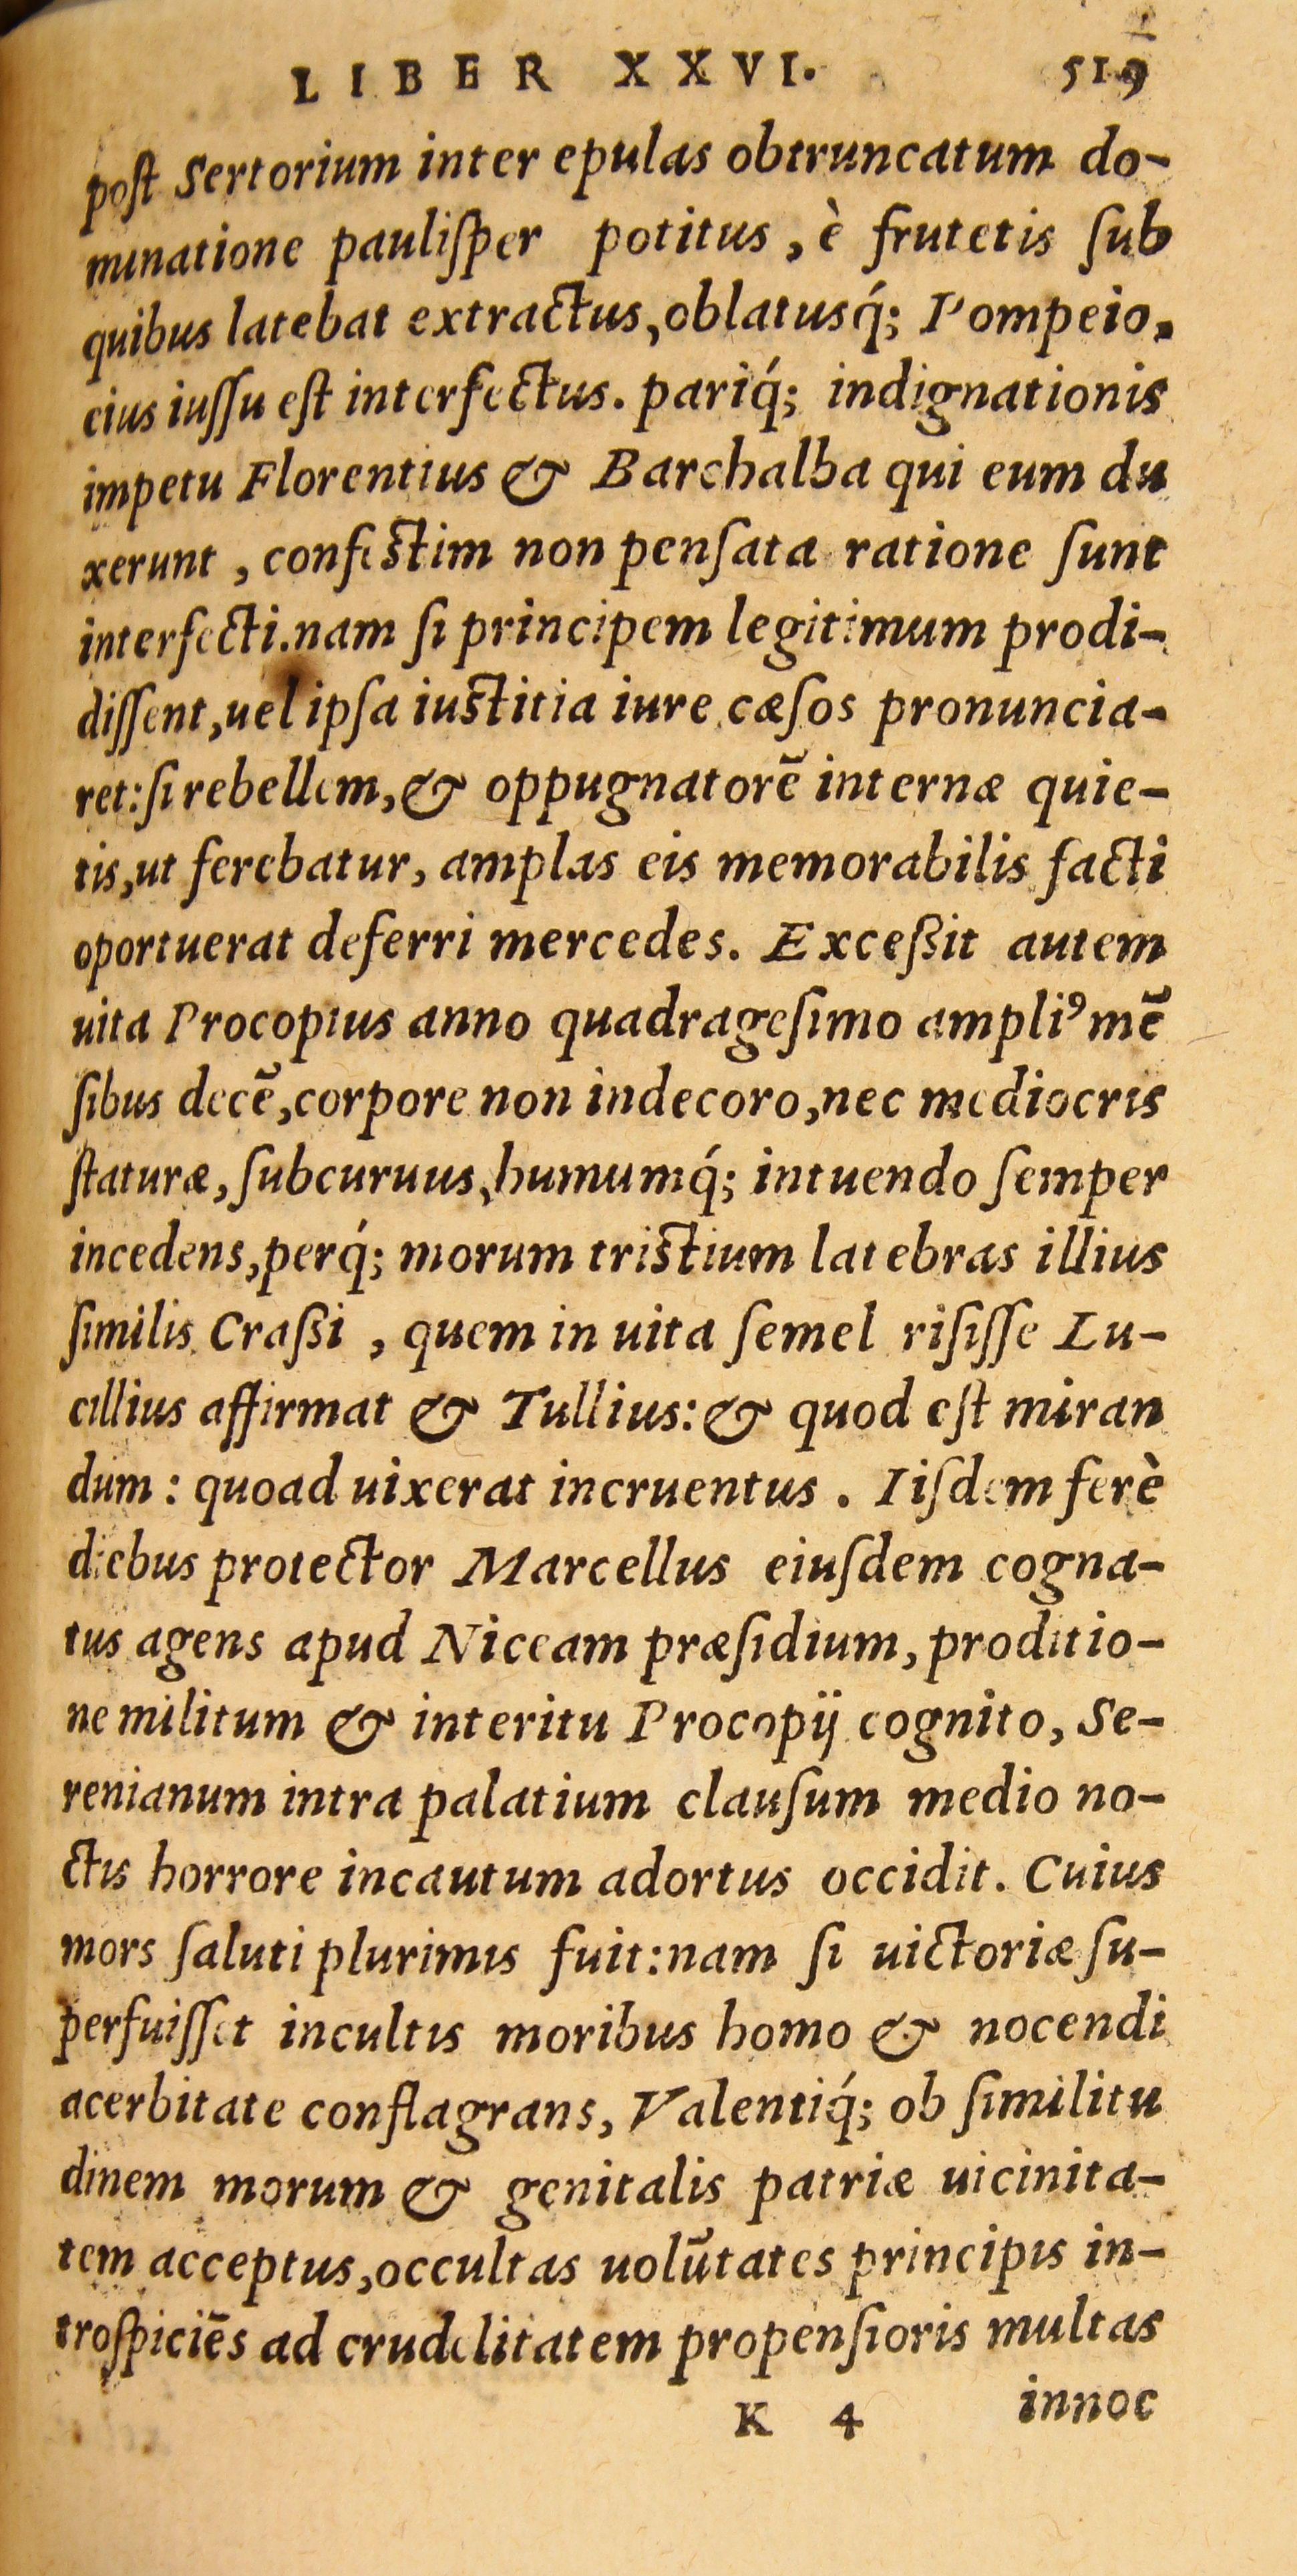 LIBER XXVI. 519
post Sertorium inter epulas obtruncatum do-
minatione paulisper potitus, è frutetis sub
quibus latebat extractus, oblatusq́; Pompeio,
eius iussu est interfectus. pariq́; indignationis
impetu Florentius & Barchalba qui eum du
xerunt, confestim non pensata ratione sunt
interfecti. nam si principem legitimum prodi-
dissent, uel ipsa iustitia iure cæsos pronuncia-
ret: si rebellem, & oppugnatorē internæ quie-
tis, ut ferebatur, amplas eis memorabilis facti
oportuerat deferri mercedes. Exceßit autem
uita Procopius anno quadragesimo ampliꝰ mē
sibus decē, corpore non indecoro, nec mediocris
staturæ, subcuruus, humumq́; intuendo semper
incedens, perq́; morum tristium latebras illius
similis Craßi, quem in uita semel risisse Lu-
cillius affirmat & Tullius: & quod est miran
dum: quoad uixerat incruentus. Iisdem ferè
diebus protector Marcellus eiusdem cogna-
tus agens apud Niceam præsidium, proditio-
ne militum & interitu Procopij cognito, Se-
renianum intra palatium clausum medio no-
ctis horrore incautum adortus occidit. Cuius
mors saluti plurimis fuit: nam si uictoriæ su-
perfuisset incultis moribus homo & nocendi
acerbitate conflagrans, Valentiq́; ob similitu
dinem morum & genitalis patriæ uicinita-
tem acceptus, occultas uolūtates principis in-
trospiciēs ad crudelitatem propensioris multas
K 4 innoc